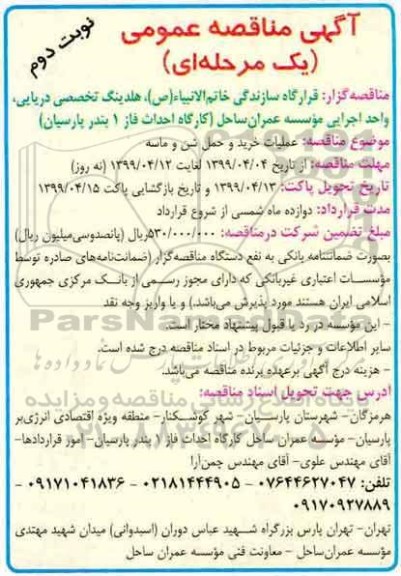 آگهی مناقصه عمومی
(یک مرحله‌ای)
نوبت دوم
مناقصه‌گزار: قرارگاه سازندگی خاتم‌الانبیاء(ص)، هلدینگ تخصصی دریایی،
واحد اجرایی مؤسسه عمران‌ساحل (کارگاه احداث فاز ۱ بندر پارسیان)
موضوع مناقصه: عملیات خرید و حمل شن و ماسه
مهلت مناقصه: از تاریخ ۱۳۹۹/۰۴/۰۴ لغایت ۱۳۹۹/۰۴/۱۲ (نه روز)
تاریخ تحویل پاکت: ۱۳۹۹/۰۴/۱۳ و تاریخ بازگشایی پاکت ۱۳۹۹/۰۴/۱۵
مدت قرارداد: دوازده ماه شمسی از شروع قرارداد
مبلغ تضمین شرکت درمناقصه: ۵۳۰/۰۰۰/۰۰۰ریال (پانصدوسی‌میلیون ریال)
بصورت ضمانتنامه بانکی به نفع دستگاه مناقصه‌گزار (ضمانت‌نامه‌های صادره توسط
مؤسسات اعتباری غیربانکی که دارای مجوز رسمی از بانک مرکزی جمهوری
اسلامی ایران هستند مورد پذیرش می‌باشد.) و یا واریز وجه نقد
- این مؤسسه در رد یا قبول پیشنهاد مختار است.
سایر اطلاعات و جزئیات مربوط در اسناد مناقصه درج شده است.
- هزینه درج آگهی برعهده برنده مناقصه می‌باشد.
آدرس جهت تحویل اسناد مناقصه:
هرمزگان- شهرستان پارسیان- شهر کوشکنار- منطقه ویژه اقتصادی انرژی‌بر
پارسیان- مؤسسه عمران ساحل کارگاه احداث فاز ۱ بندر پارسیان- امور قراردادها-
آقای مهندس علوی- آقای مهندس چمن‌آرا
تلفن: ۰۷۶۴۴۶۲۷۰۴۷ - ۰۲۱۸۱۴۴۴۹۰۵ - ۰۹۱۷۱۰۴۱۸۳۶ -
۰۹۱۷۰۹۲۷۸۸۹
تهران- تهران پارس بزرگراه شهید عباس دوران (استخر) میدان شهید مهتدی
مؤسسه عمران‌ساحل - معاونت فنی مؤسسه عمران ساحل
ParsNamadData